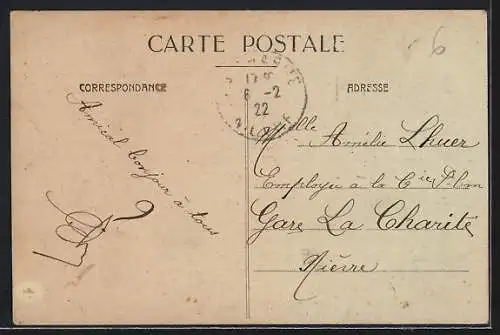 CARTE POSTALE
CORRESPONDANCE
ADRESSE
6
6 -2
22
Amical bonjour à tous
Mlle Amélie Lhuer
Employée à la Cie P-Lm
Gare La Charité
Nièvre